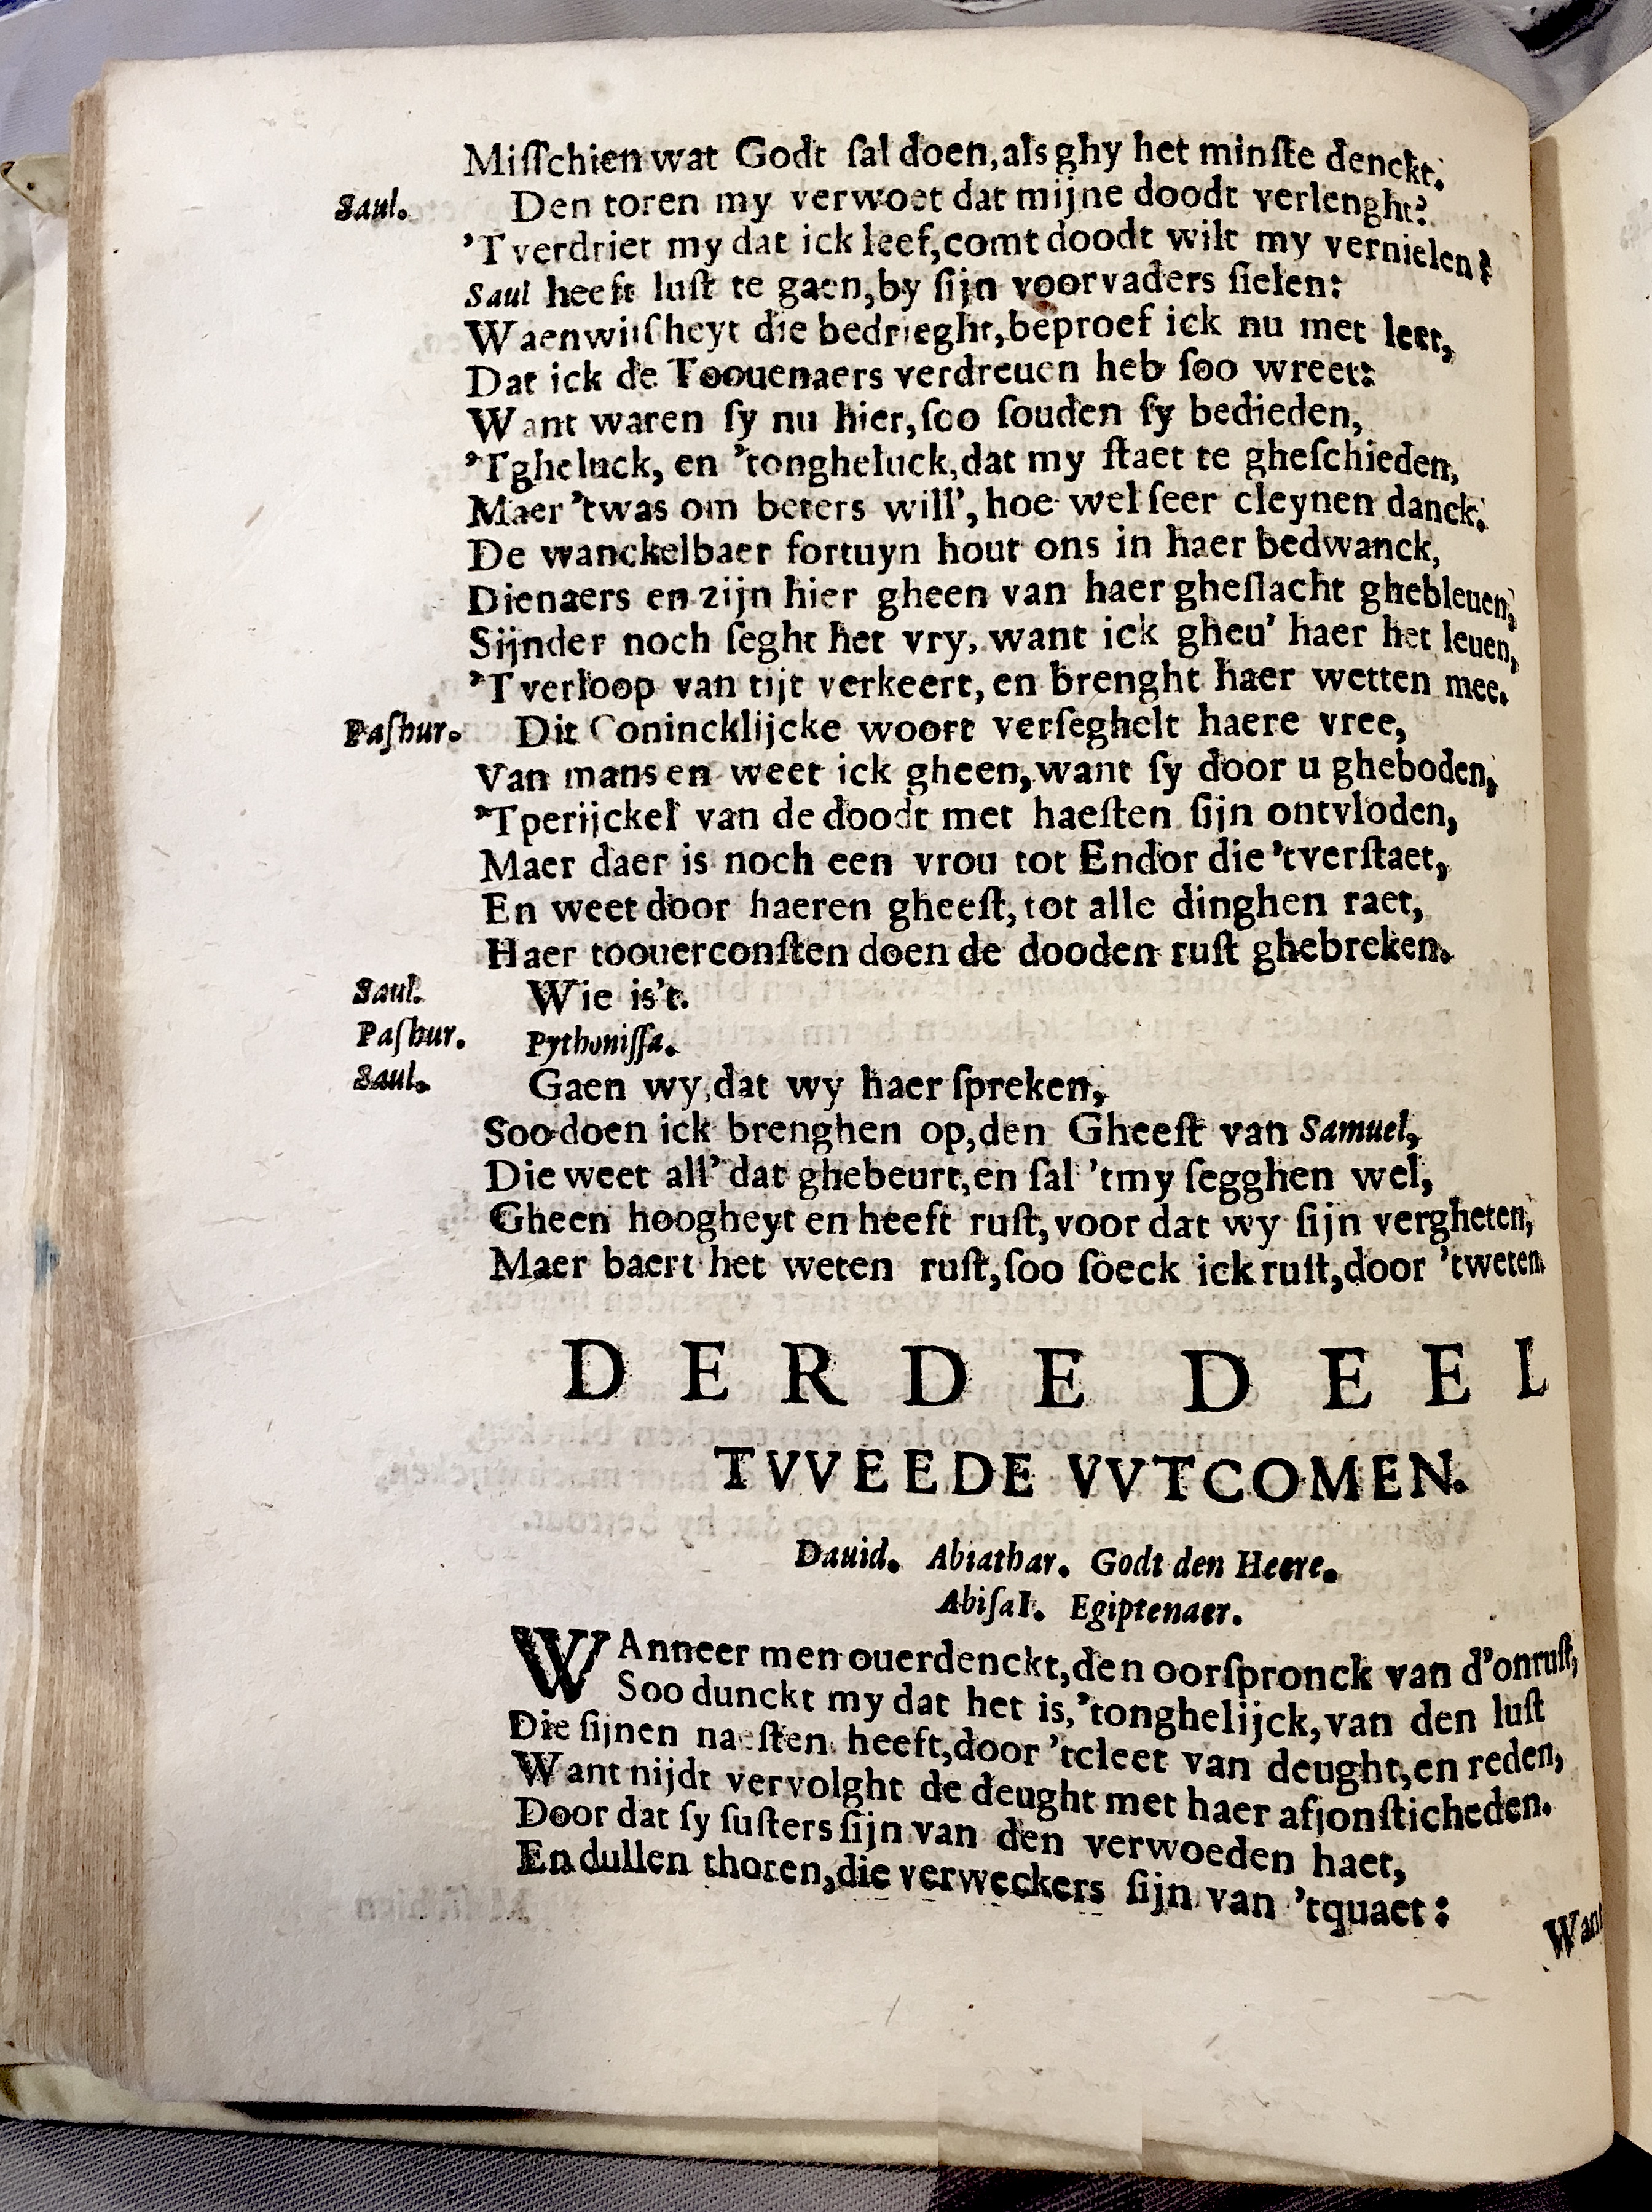 Misſchien wat Godt ſal doen, als ghy het minſte denckt.
Saul. Den toren my verwoet dat mijne doodt verlenght?
'Tverdriet my dat ick leef, comt doodt wilt my vernielen?
Saul heeft luſt te gaen, by ſijn voorvaders ſielen:
Waenwiiſheyt die bedrieght, beproef ick nu met leet,
Dat ick de Toouenaers verdreuen heb ſoo wreet:
Want waren ſy nu hier, ſoo ſouden ſy bedieden,
'Tgheluck, en 'tongheluck, dat my ſtaet te gheſchieden,
Maer 'twas om beters will', hoe wel ſeer cleynen danck.
De wanckelbaer fortuyn hout ons in haer bedwanck,
Dienaers en zijn hier gheen van haer gheſlacht ghebleuen,
Sijnder noch ſeght het vry, want ick gheu' haer het leuen,
'Tverloop van tijt verkeert, en brenght haer wetten mee.
Paſhur. Dit Conincklijcke woort verſeghelt haere vree,
Van mans en weet ick gheen, want ſy door u gheboden,
'Tperijckel van de doodt met haeſten ſijn ontvloden,
Maer daer is noch een vrou tot Endor die 'tverſtaet,
En weet door haeren gheeſt, tot alle dinghen raet,
Haer toouerconſten doen de dooden ruſt ghebreken.
Saul. Wie is't.
Paſhur. Pythoniſſa.
Saul. Gaen wy, dat wy haer ſpreken,
Soo doen ick brenghen op, den Gheeſt van Samuel,
Die weet all' dat ghebeurt, en ſal 'tmy ſegghen wel,
Gheen hoogheyt en heeft ruſt, voor dat wy ſijn vergheten,
Maer baert het weten ruſt, ſoo ſoeck ick ruſt, door 'tweten
DERDE DEEL
TVVEEDE VVTCOMEN.
Dauid. Abiathar. Godt den Heere.
AbiſaI. Egiptenaer.
WAnneer men ouerdenckt, den oorſpronck van d'onruſt,
Soo dunckt my dat het is, 'tonghelijck, van den luſt
Die ſijnen naeſten heeft, door 'tcleet van deught, en reden,
Want nijdt vervolght de deught met haer afjonſticheden.
Door dat ſy ſuſters ſijn van den verwoeden haet,
En dullen thoren, die verweckers ſijn van 'tquaet:
Want